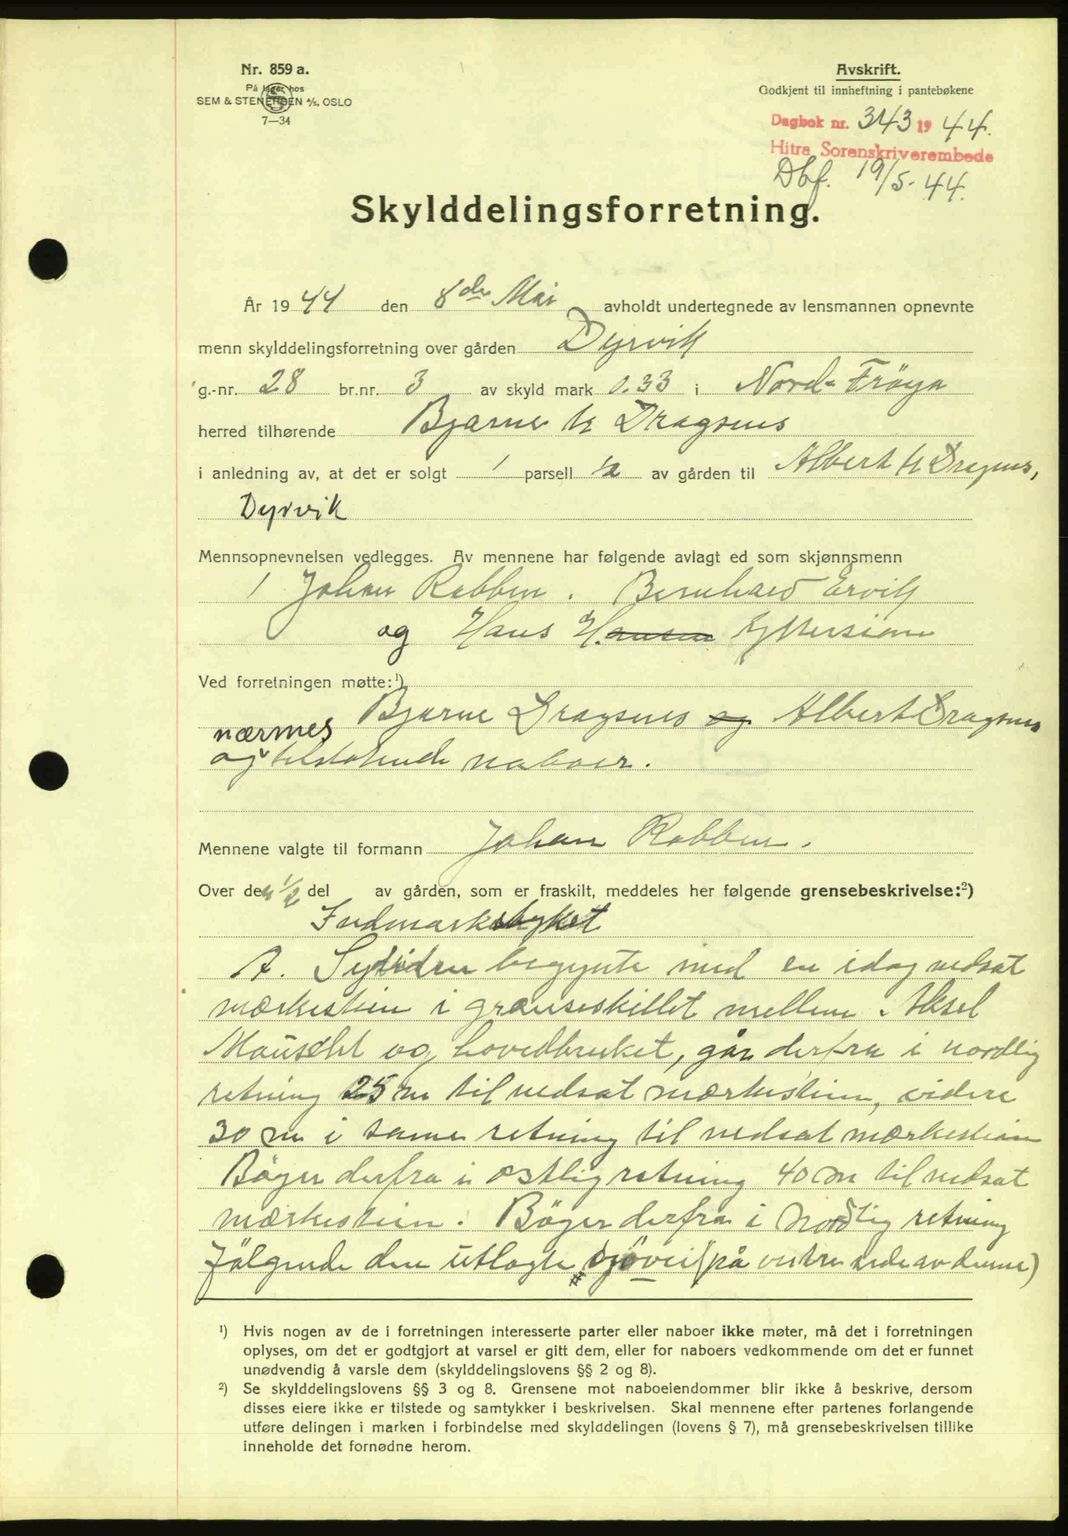 Nr. 859 a.
På lager hos
SEM & STENERSEN A/S, OSLO
7—34
Avskrift.
Godkjent til innheftning i pantebøkene
Dagbok nr. 343 19 44.
Hitra Sorenskriverembede
Dbf. 19/5-44.
Skylddelingsforretning.
År 1944 den 8de Mai avholdt undertegnede av lensmannen opnevnte
menn skylddelingsforretning over gården Dyrvik
g.-nr. 28 br.nr. 3 av skyld mark 0.33 i Nord-Fröya
herred tilhørende Bjarne H Dragsnes
i anledning av, at det er solgt 1 parsell ½ av gården til Albert H Dragsnes,
Dyrvik
Mennsopnevnelsen vedlegges. Av mennene har følgende avlagt ed som skjønnsmenn
1 Johan Rabben. Bernhard Ervik
og Hans H. Hansen Yttersian
Ved forretningen møtte:¹)
Bjarne Dragsnes og Albert Dragsnes
nærmes
og tilstötende naboer.
Mennene valgte til formann Johan Rabben.
Over den ½ del av gården, som er fraskilt, meddeles her følgende grensebeskrivelse:²)
Indmarkstykket
A. Sydsiden begynte med en idag nedsat
mærkestein i grænseskillet mellem Aksel
og hovedbruket, går derfra i nordlig
retning 25 m til nedsat mærkestein, videre
30 m i samme retning til nedsat mærkestein
Böyer derfra i östlig retning 40 m til nedsat
mærkestein. Böyer derfra i Nordlig retning
fölgende den utlagte sjövei (på vestre side av denne)
¹) Hvis nogen av de i forretningen interesserte parter eller naboer ikke møter, må det i forretningen
oplyses, om det er godtgjort at varsel er gitt dem, eller for naboers vedkommende om det er funnet
unødvendig å varsle dem (skylddelingslovens §§ 2 og 8).
²) Se skylddelingslovens §§ 3 og 8. Grensene mot naboeiendommer blir ikke å beskrive, dersom
disses eiere ikke er tilstede og samtykker i beskrivelsen. Skal mennene efter partenes forlangende
utføre delingen i marken i forbindelse med skylddelingen (lovens § 7), må grensebeskrivelsen tillike
inneholde det fornødne herom.